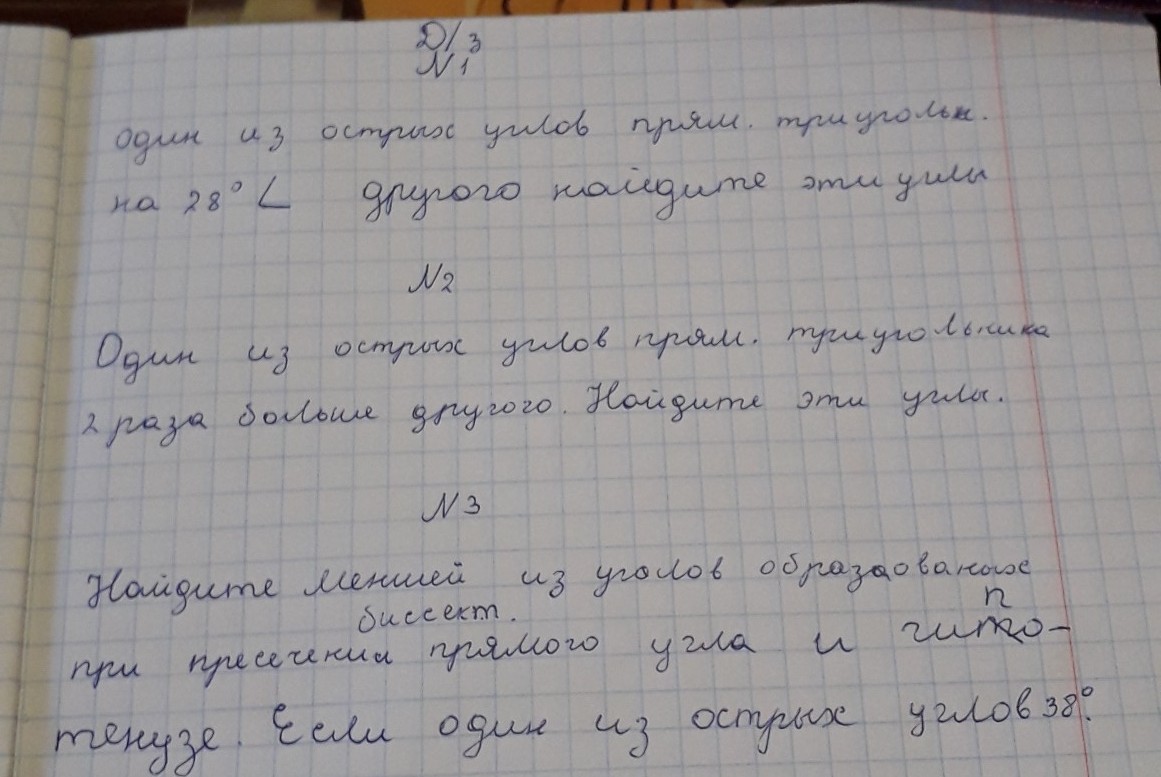 Д/з
N1
один из острых углов прям. триугольн.
на 28° < другого найдите эти углы
N2
Один из острых углов прям. триугольника
2 раза больше другого. Найдите эти углы.
N3
Найдите меншей из уголов образдованых
биссект.
при пресечении прямого угла и гипо-
тенузе. Если один из острых углов 38°.